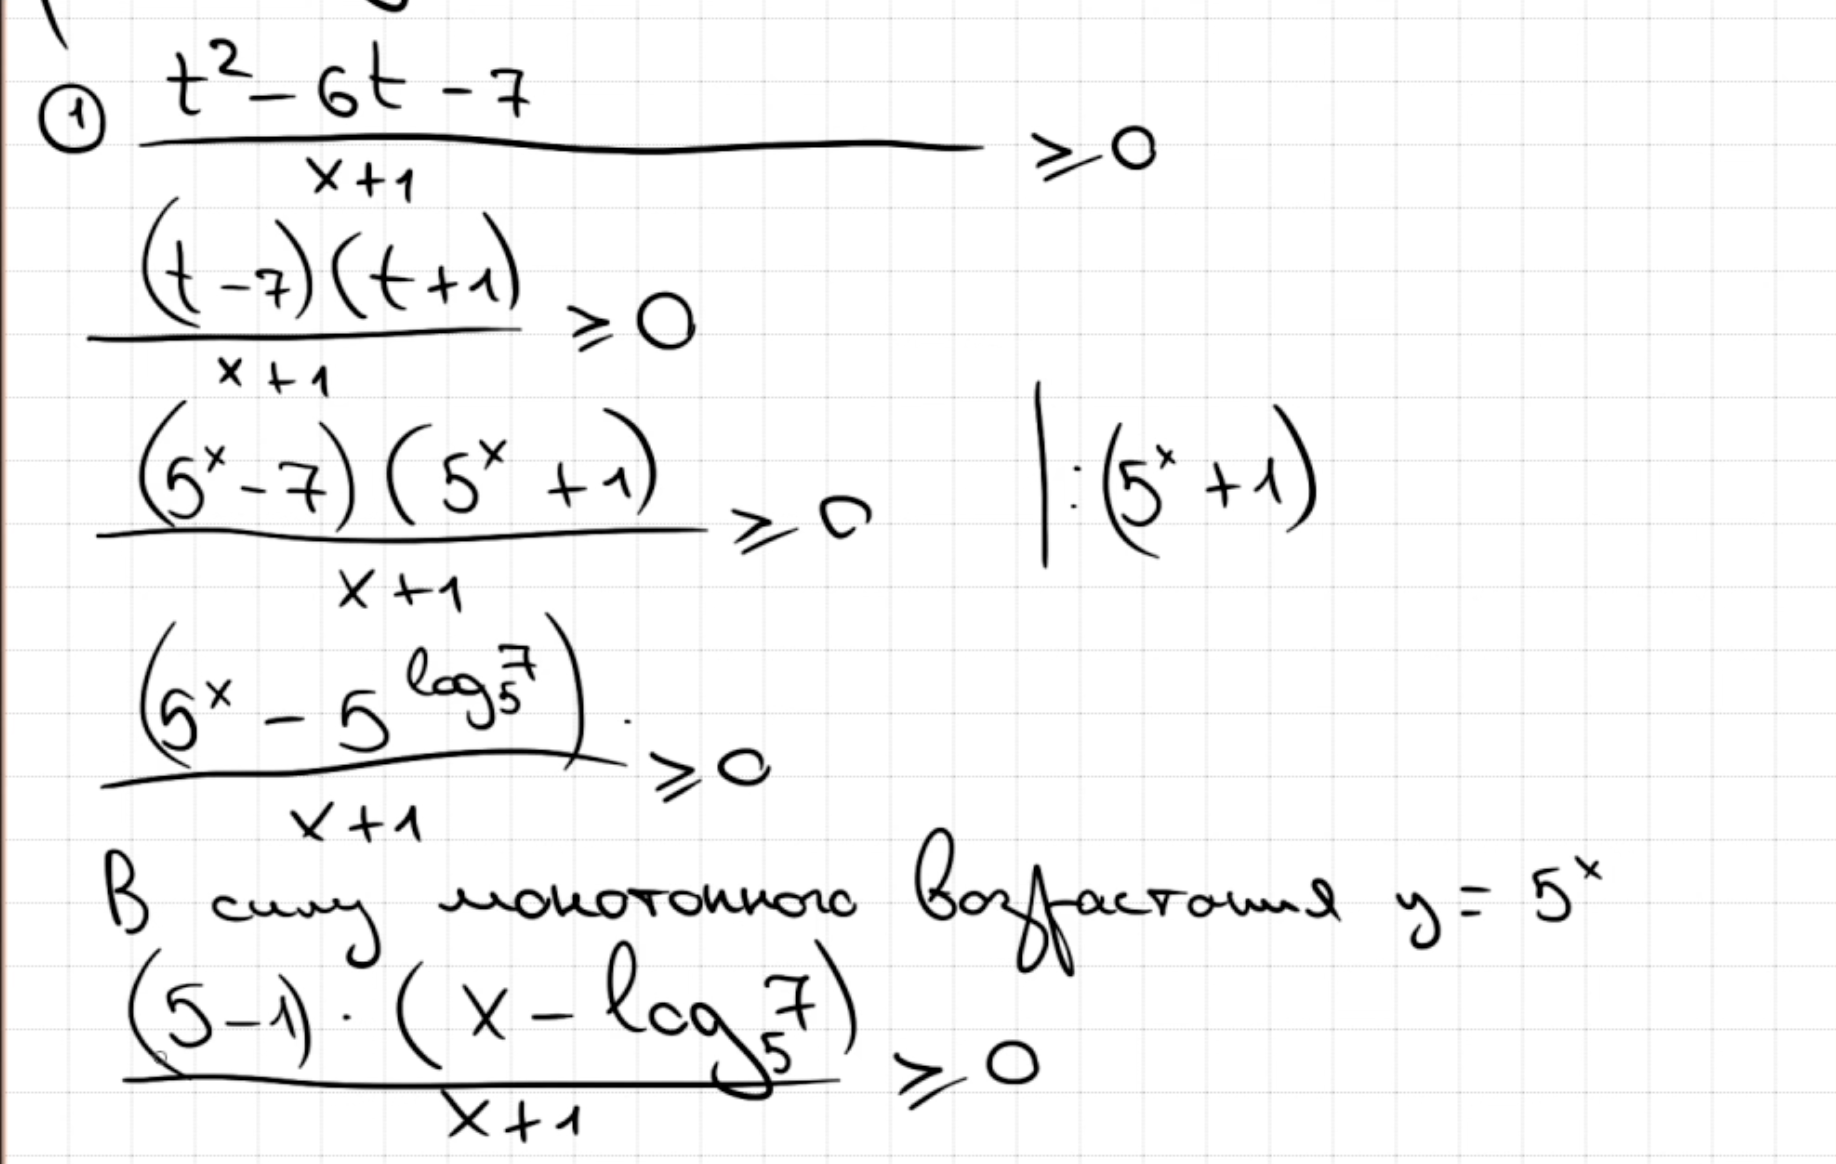 ① (t² - 6t - 7) / (x + 1) ⩾ 0
((t - 7)(t + 1)) / (x + 1) ⩾ 0
((5ˣ - 7)(5ˣ + 1)) / (x + 1) ⩾ 0 | : (5ˣ + 1)
(5ˣ - 5^(log₅7)) · / (x + 1) ⩾ 0
В силу монотонного возрастания y = 5ˣ
((5 - 1) · (x - log₅7)) / (x + 1) ⩾ 0